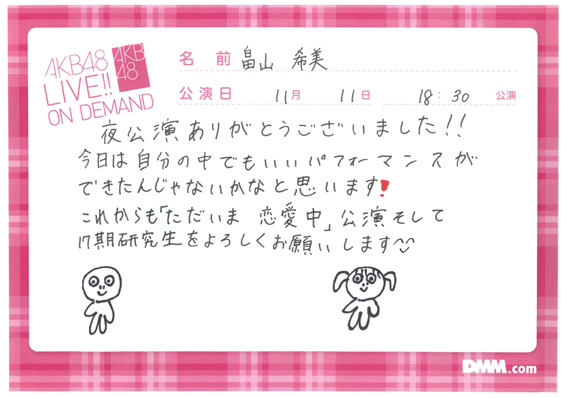 AKB48
LIVE!!
ON DEMAND
AKB
48
名 前 畠山 希美
公演日 11月 11日 18:30 公演
夜公演ありがとうございました!!
今日は自分の中でもいいパフォーマンスが
できたんじゃないかなと思います!
これからも「ただいま 恋愛中」公演そして
17期研究生をよろしくお願いします
DMM.com